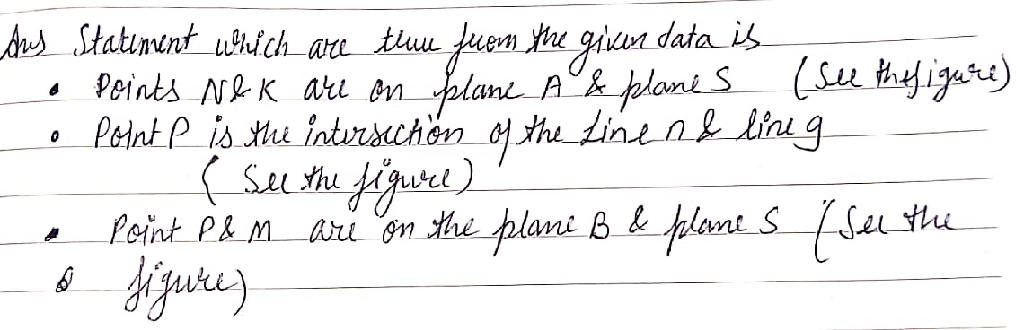 Ans Statement which are true from the given data is
• Points N & K are on plane A & plane S (See the figure)
• Point P is the intersection of the Line n & line g
( See the figure)
• Point P & M are on the plane B & plane S (See the
figure)